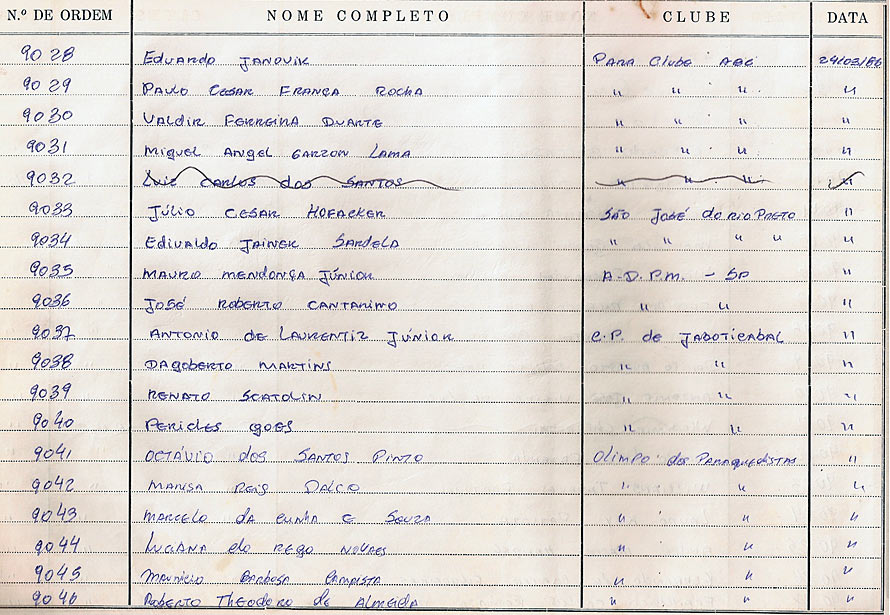 N.º DE ORDEM NOME COMPLETO CLUBE DATA
9028 Eduardo Janovik Para Clube ABC 24/03/86
9029 Paulo Cesar França Rocha " " " "
9030 Valdir Ferreira Duarte " " " "
9031 Miguel Angel Garzon Lama " " " "
9032 Luiz Carlos dos Santos " " " "
9033 Júlio Cesar Hofacker São José do Rio Preto "
9034 Edivaldo Sardela " " " " "
9035 Mauro Mendonça Júnior A.D.P.M. - SP "
9036 José Roberto Cantarino " " "
9037 Antonio de Laurentiz Júnior C.P. de Jaboticabal "
9038 Dagoberto Martins " " "
9039 Renato Scatolin " " "
9040 Pericles Goes " " "
9041 Octávio dos Santos Pinto Olimpo do Paraquedista "
9042 Marisa Reis " " "
9043 Marcelo da Cunha e Souza " " "
9044 Luciana do Rego Novaes " " "
9045 Mauricio Barbosa Campista " " "
9046 Roberto Theodoro de Almeida " " "